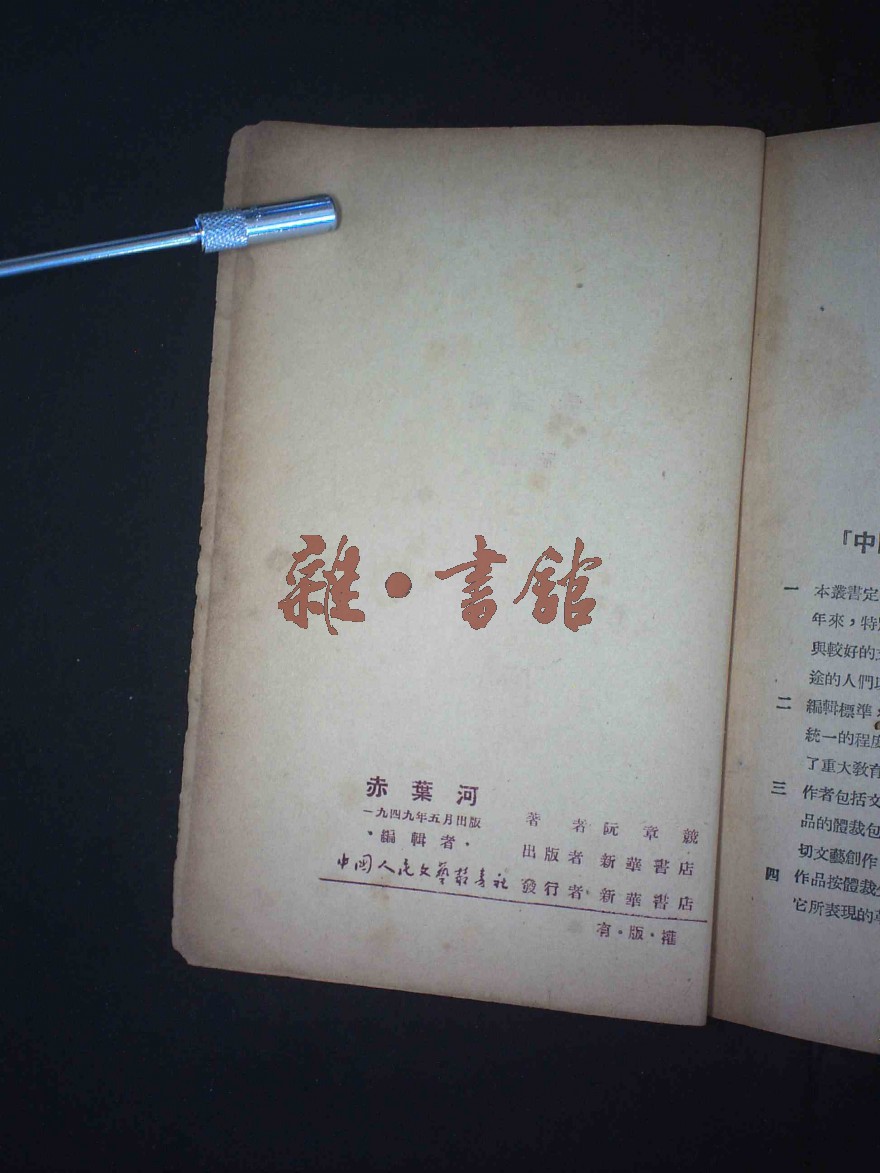 雜·書館
赤葉河
一九四九年五月出版
·編輯者·
中國人民文藝叢書社
著者 阮章競
出版者 新華書店
發行者 新華書店
有·版·權
『中
一 本叢書定
年來，特
與較好的
途的人們
二 編輯標準
統一的程度
了重大教育
三 作者包括文
品的體裁包
切文藝創作
四 作品按體裁
它所表現的